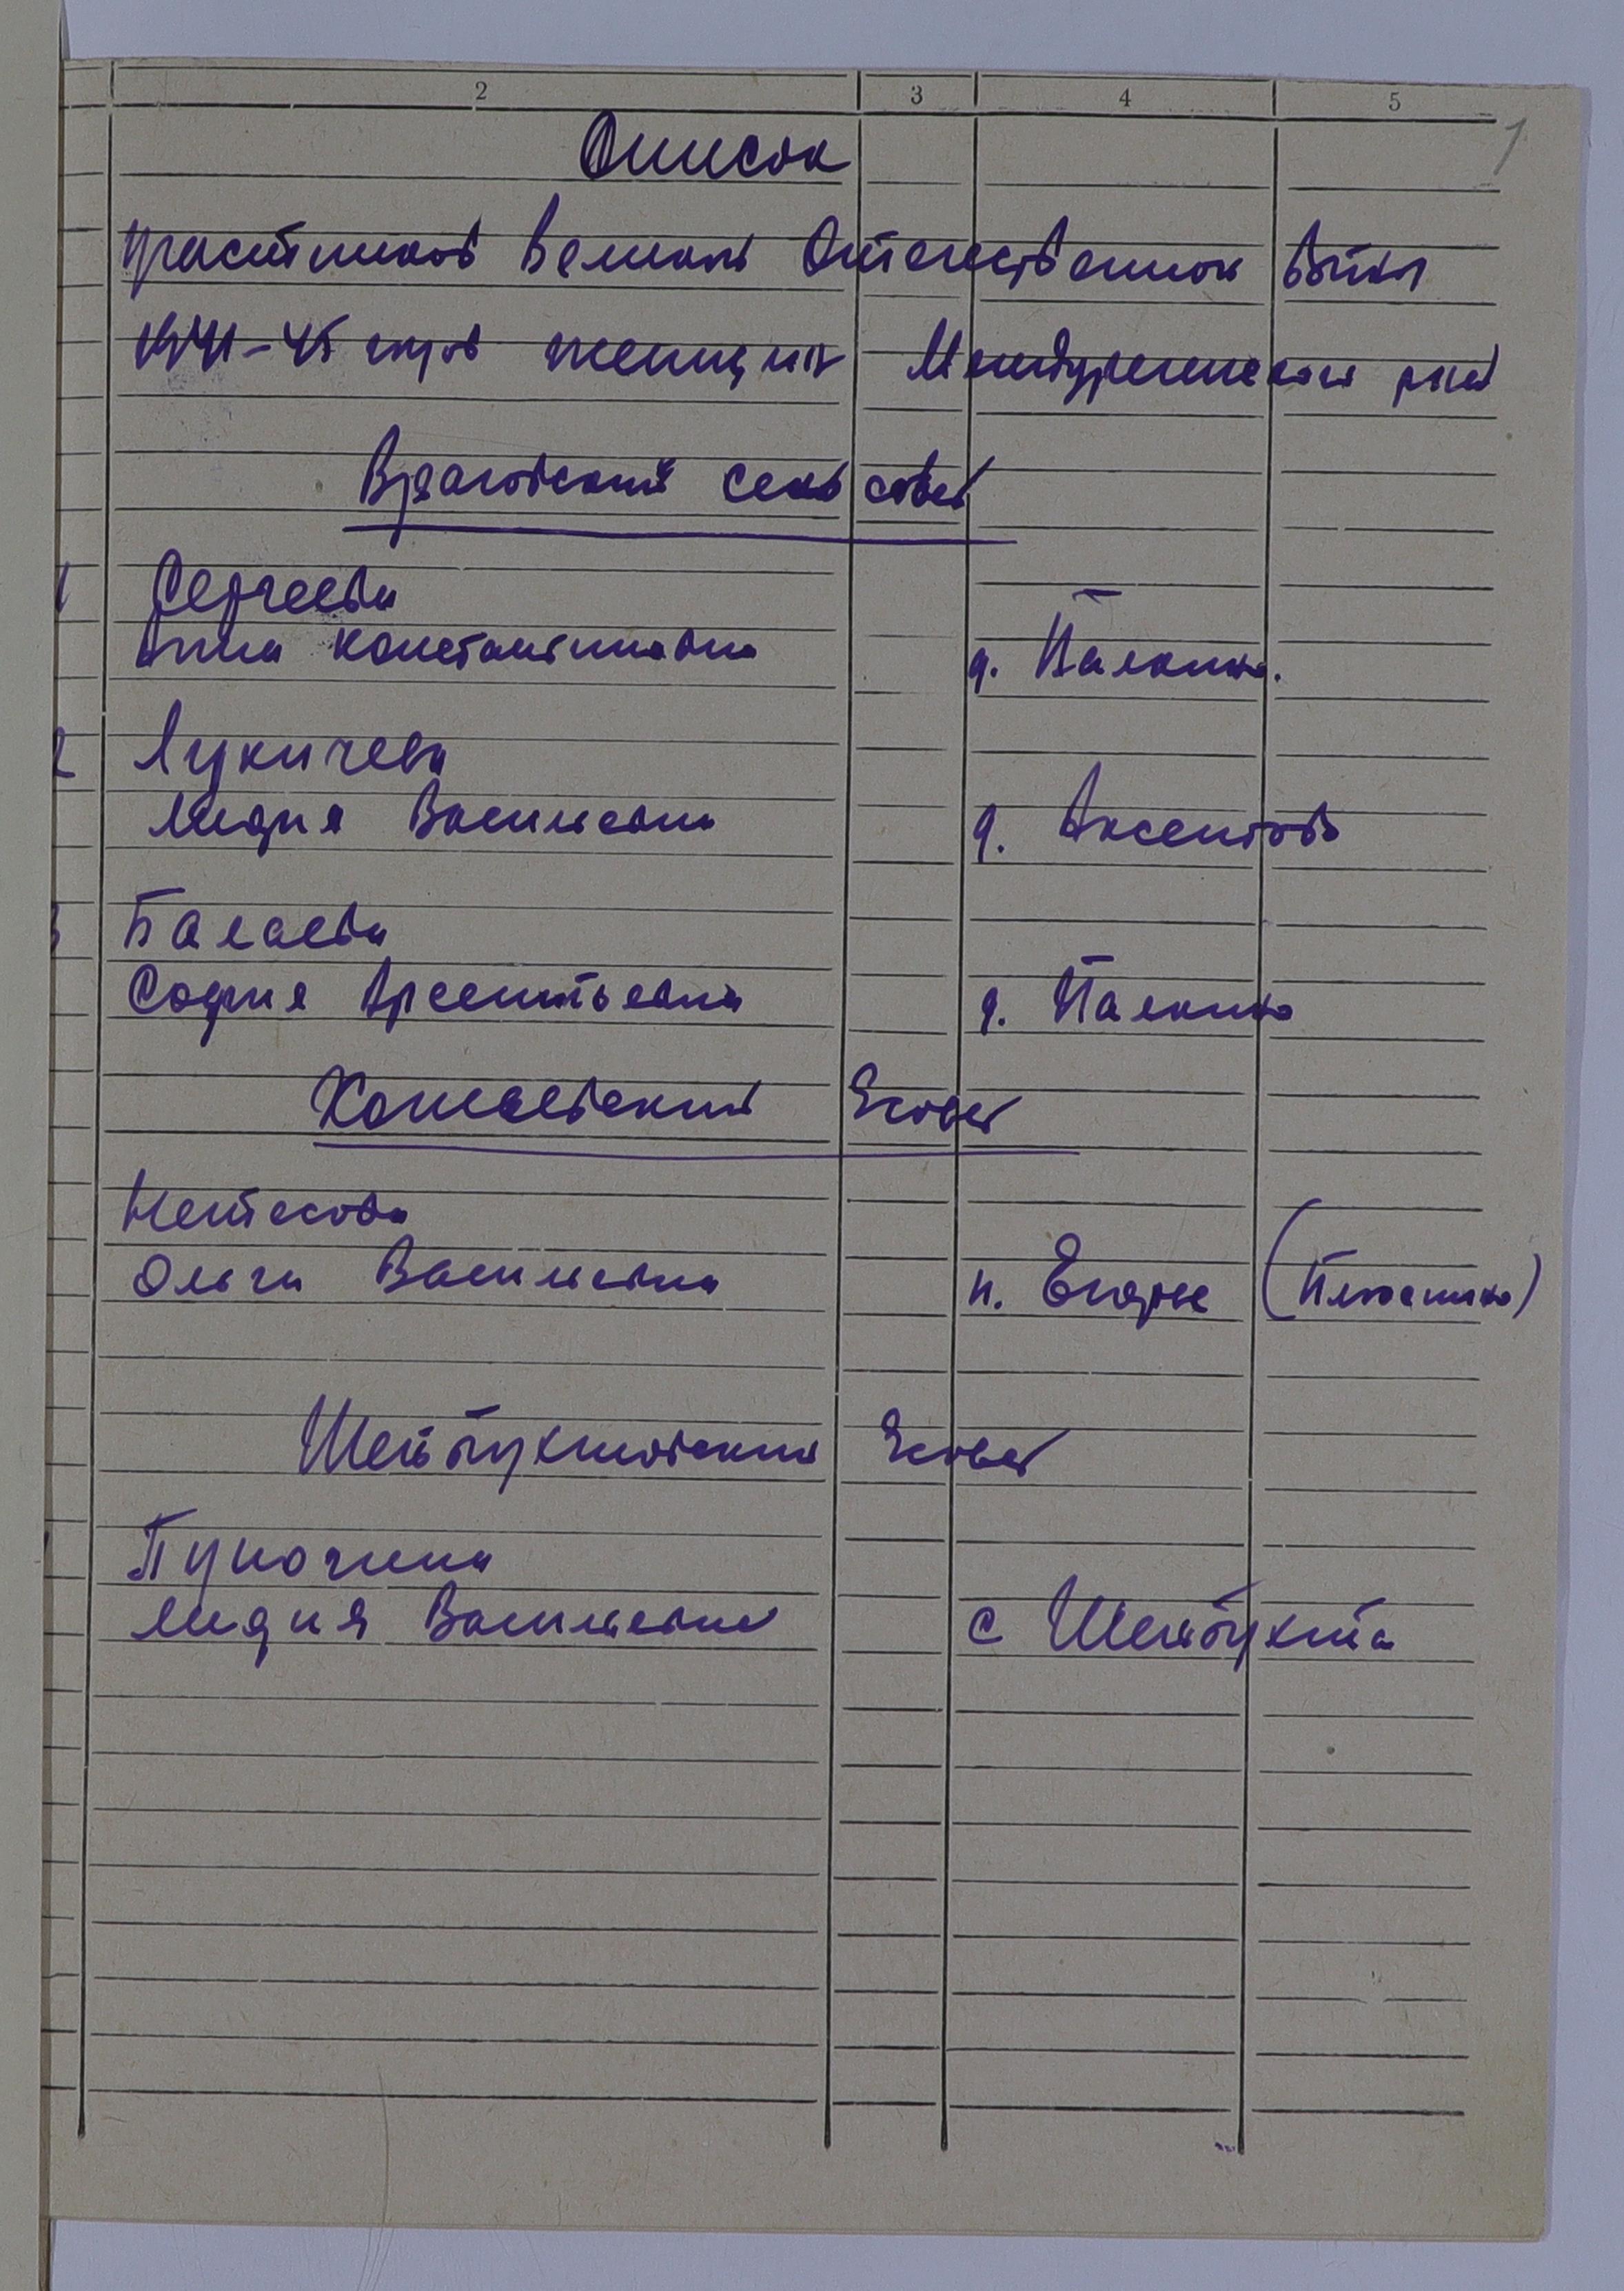 2 3 4 5
1
Список
участников Великой Отечественной войны
1941-45 годов женщин Междуреченского р-на
Врагоский сельсовет
1 Сергеева
Анна Константиновна д. Палкино.
2 Лукичева
Лидия Васильевна д. Аксентово
3 Балаева
София Арсентьевна д. Палкино
Хожаевский с/совет
Ольга Васильевна п. Егорье (Плоскино)
Шейбухтовский с/совет
Пуночина
Лидия Васильевна с Шейбухта